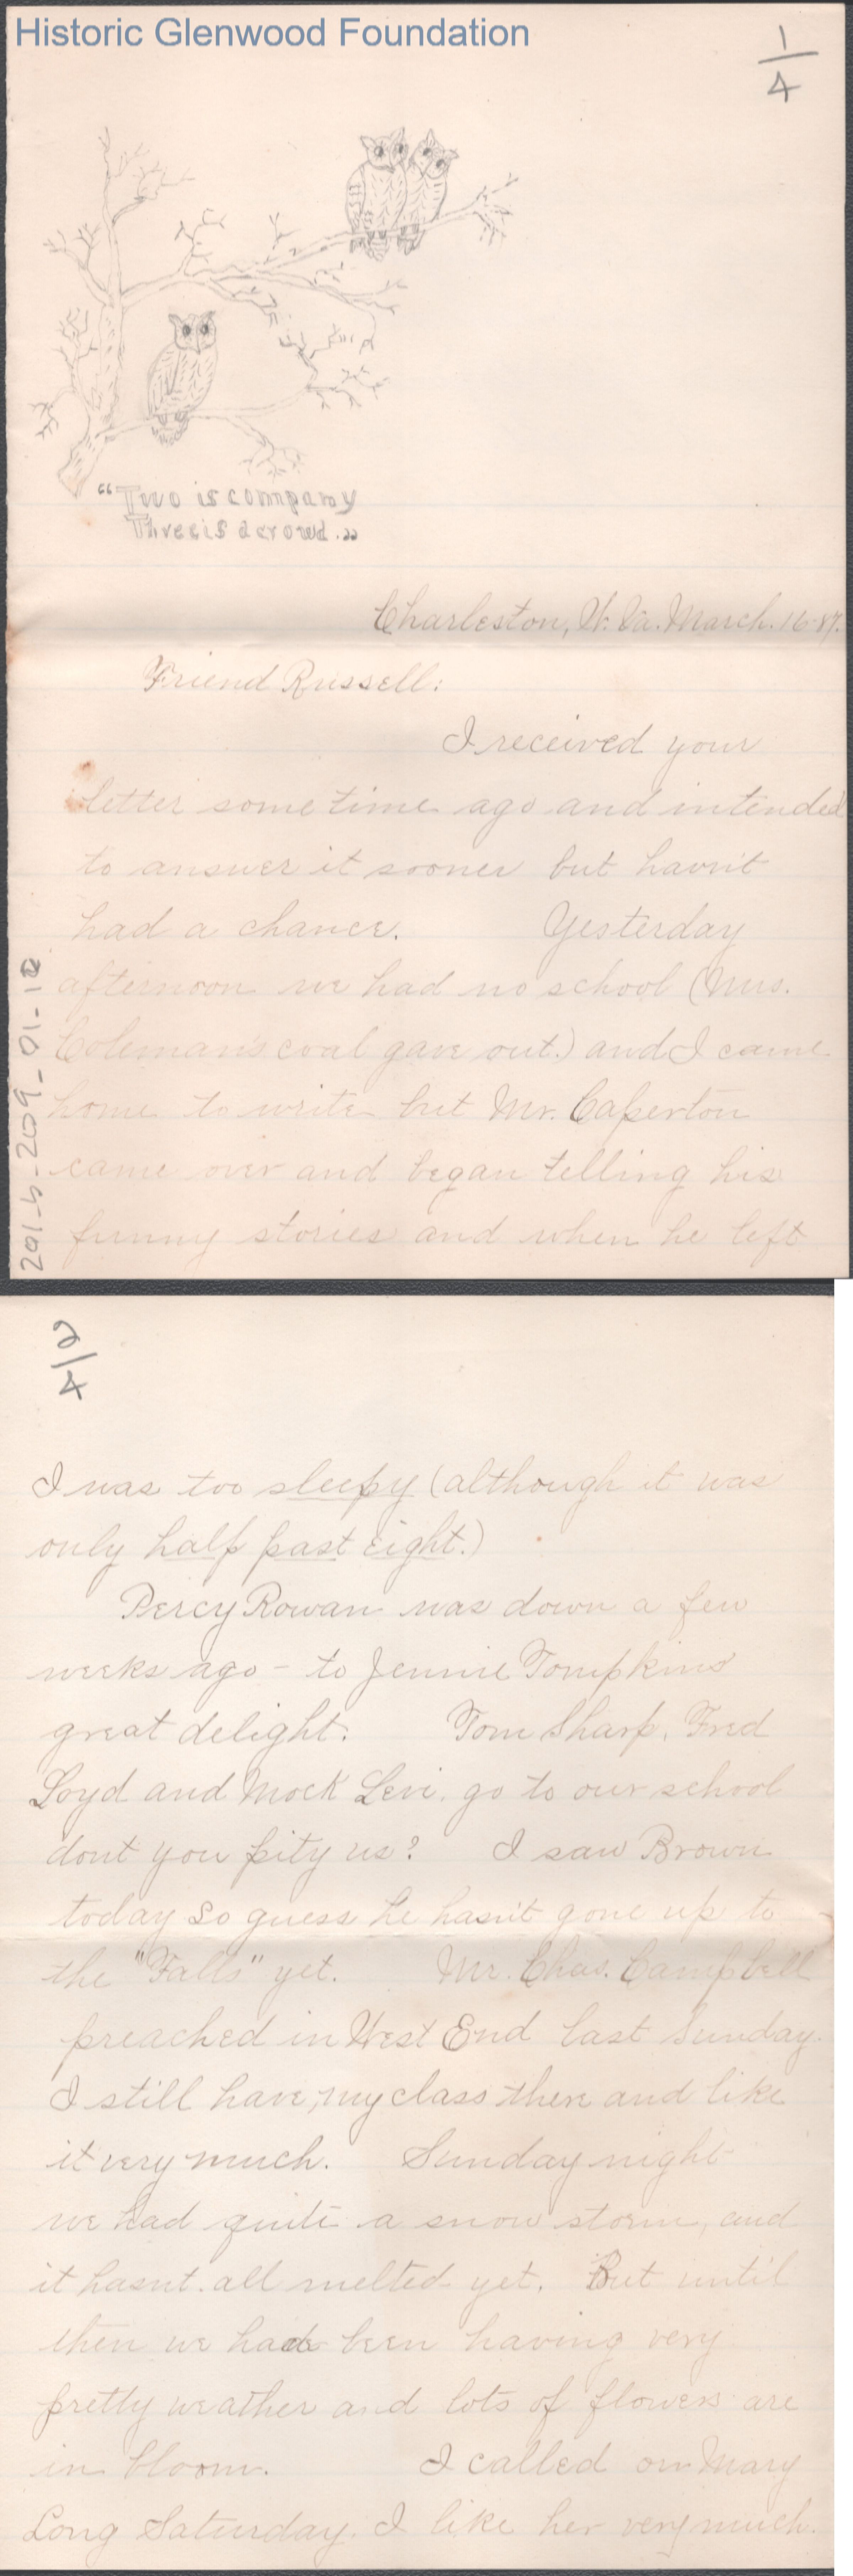 Historic Glenwood Foundation
1/4
"Two is company
Three is a crowd."
Charleston, W. Va. March. 16-87.
Friend Russell:
I received your
letter some time ago and intended
to answer it sooner but havn't
had a chance. Yesterday
afternoon we had no school (Mrs.
Coleman's coal gave out.) and I came
home to write but Mr. Caperton
came over and began telling his
funny stories and when he left
201-5-209-01-12
2/4
I was too sleepy (although it was
only half past eight.)
Percy Rowan was down a few
weeks ago - to Jennie Tompkins
great delight. Tom Sharp, Fred
Loyd and Mock Levi. go to our school
dont you pity us? I saw Brown
today so guess he hasn't gone up to
the "Falls" yet. Mr. Chas. Campbell
preached in West End last Sunday.
I still have my class there and like
it very much. Sunday night
we had quite a snow storm, and
it hasnt all melted yet. But until
then we had been having very
pretty weather and lots of flowers are
in bloom. I called on Mary
Long Saturday. I like her very much.